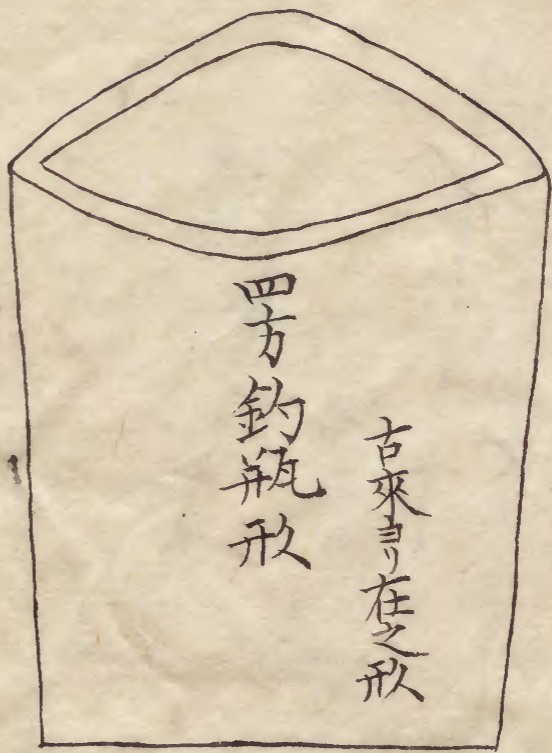 古來ヨリ在之形
四方釣瓶形